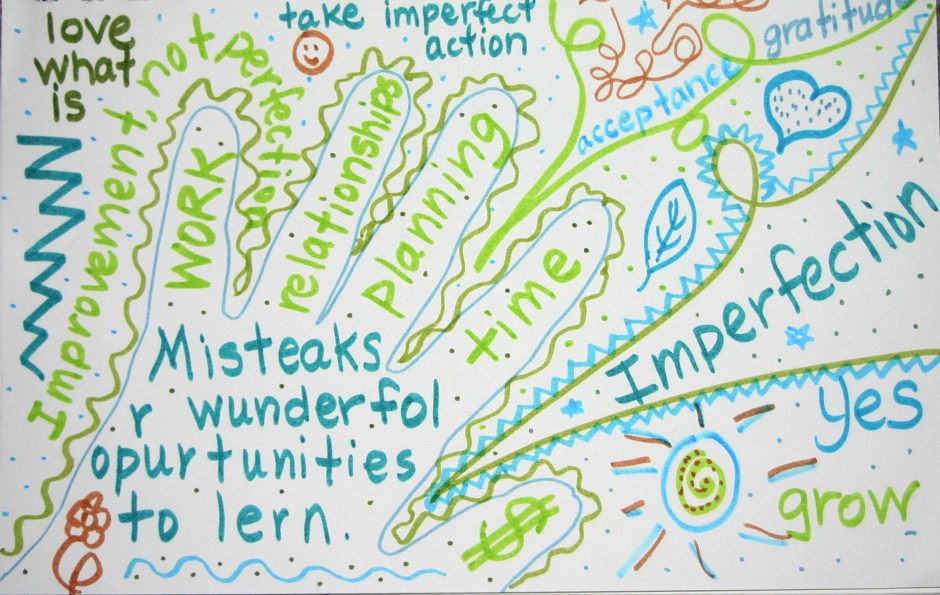 love
what
is
take imperfect
action
Improvement, not perfection
WORK
relationships
Planning
time
$
acceptance
gratitude
Imperfection
Misteaks
r wunderful
opurtunities
to lern.
yes
grow